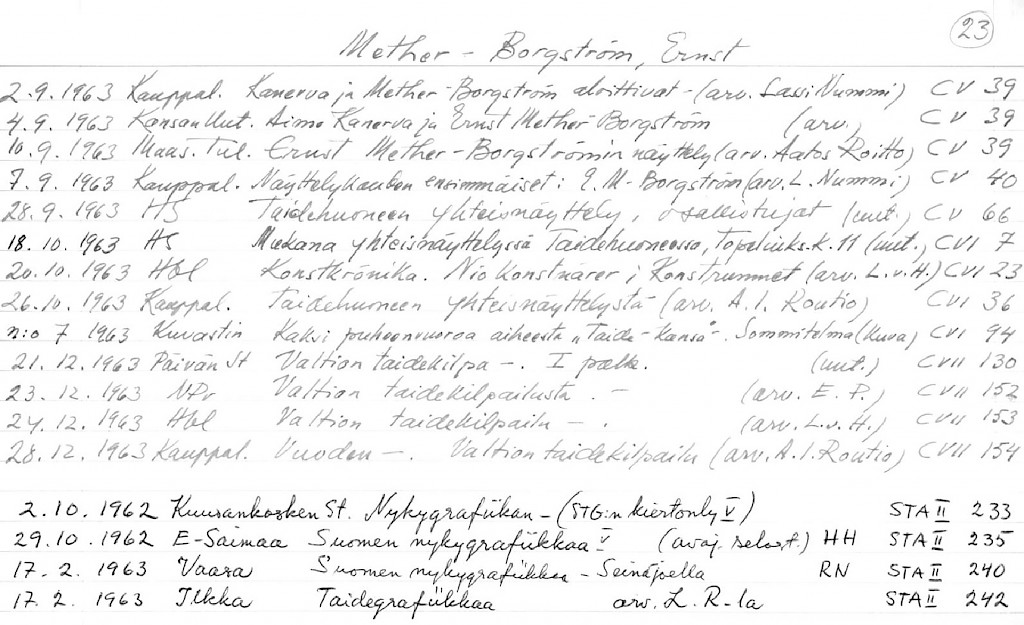 23
Mether-Borgström, Ernst
2.9.1963 Kauppal. Kanerva ja Mether-Borgström aloittivat - (arv. Lassi Nummi) CV 39
4.9.1963 Kansan Uut. Aimo Kanerva ja Ernst Mether-Borgström (arv.) CV 39
10.9.1963 Maas. Tul. Ernst Mether-Borgströmin näyttely (arv. Aatos Roitto) CV 39
7.9.1963 Kauppal. Näyttelykauden ensimmäiset: E. M-Borgström (arv. L. Nummi) CV 40
28.9.1963 HS Taidehuoneen yhteisnäyttely, osallistujat (uut.) CV 66
18.10.1963 HS Mukana yhteisnäyttelyssä Taidehuoneessa, Topeliuks.k. 11 (uut.) CVI 7
20.10.1963 Hbl Konstkrönika. Nio konstnärer i Konstrummet (arv. L.v.H.) CVI 23
26.10.1963 Kauppal. Taidehuoneen yhteisnäyttelystä (arv. A.I. Routio) CVI 36
n:o 7 1963 Kuvastin Kaksi puheenvuoroa aiheesta "Taide-kansa"-. Sommitelma (kuva) CVI 94
21.12.1963 Päivän St Valtion taidekilpa -. I palk. (uut.) CVII 130
23.12.1963 NPr Valtion taidekilpailusta. - (arv. E.P.) CVII 152
24.12.1963 Hbl Valtion taidekilpailu -. (arv. L.v.H.) CVII 153
28.12.1963 Kauppal. Vuoden -. Valtion taidekilpailu (arv. A.I. Routio) CVII 154
2.10.1962 Kuusankosken St. Nykygrafiikan - (STG:n kiertonly V) STA II 233
29.10.1962 E-Saimaa Suomen nykygrafiikkaa V (avaj. selost.) HH STA II 235
17.2.1963 Vaasa Suomen nykygrafiikkaa - Seinäjoella RN STA II 240
17.2.1963 Ilkka Taidegrafiikkaa arv. L. R-la STA II 242